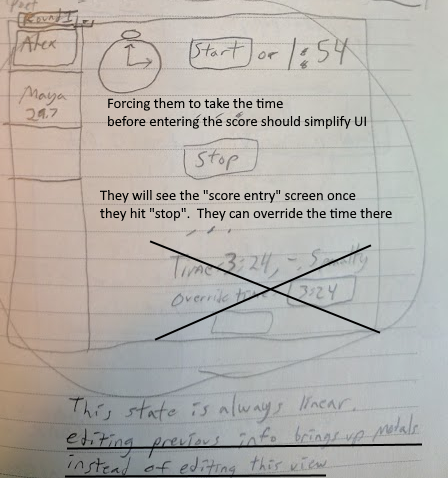 Poet
Round 1
Alex
Start or 1:54
Maya
29.7
Forcing them to take the time
before entering the score should simplify UI
Stop
They will see the "score entry" screen once
they hit "stop". They can override the time there
Time: 3:24, -.5 penalty
Override time: 3:24
This state is always linear.
editing previous info brings up modals
instead of editing this view